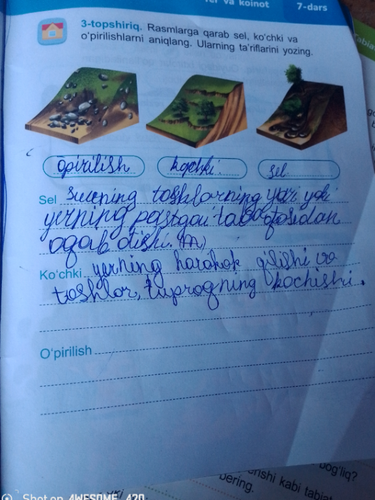 va koinot
7-dars
3-topshiriq. Rasmlarga qarab sel, ko'chki va
o'pirilishlarni aniqlang. Ularning ta'riflarini yozing.
opirilish
kochki
sel
Sel suvning toshlarning yoki
yerning pastgai tabaqasidan
oqab
Ko'chki yerning harakok qilishi va
toshlar, tuproqning kochishi.
O'pirilish
bog'liq?
enshi kabi tabiat
bering.
Shot on AWESOME A20